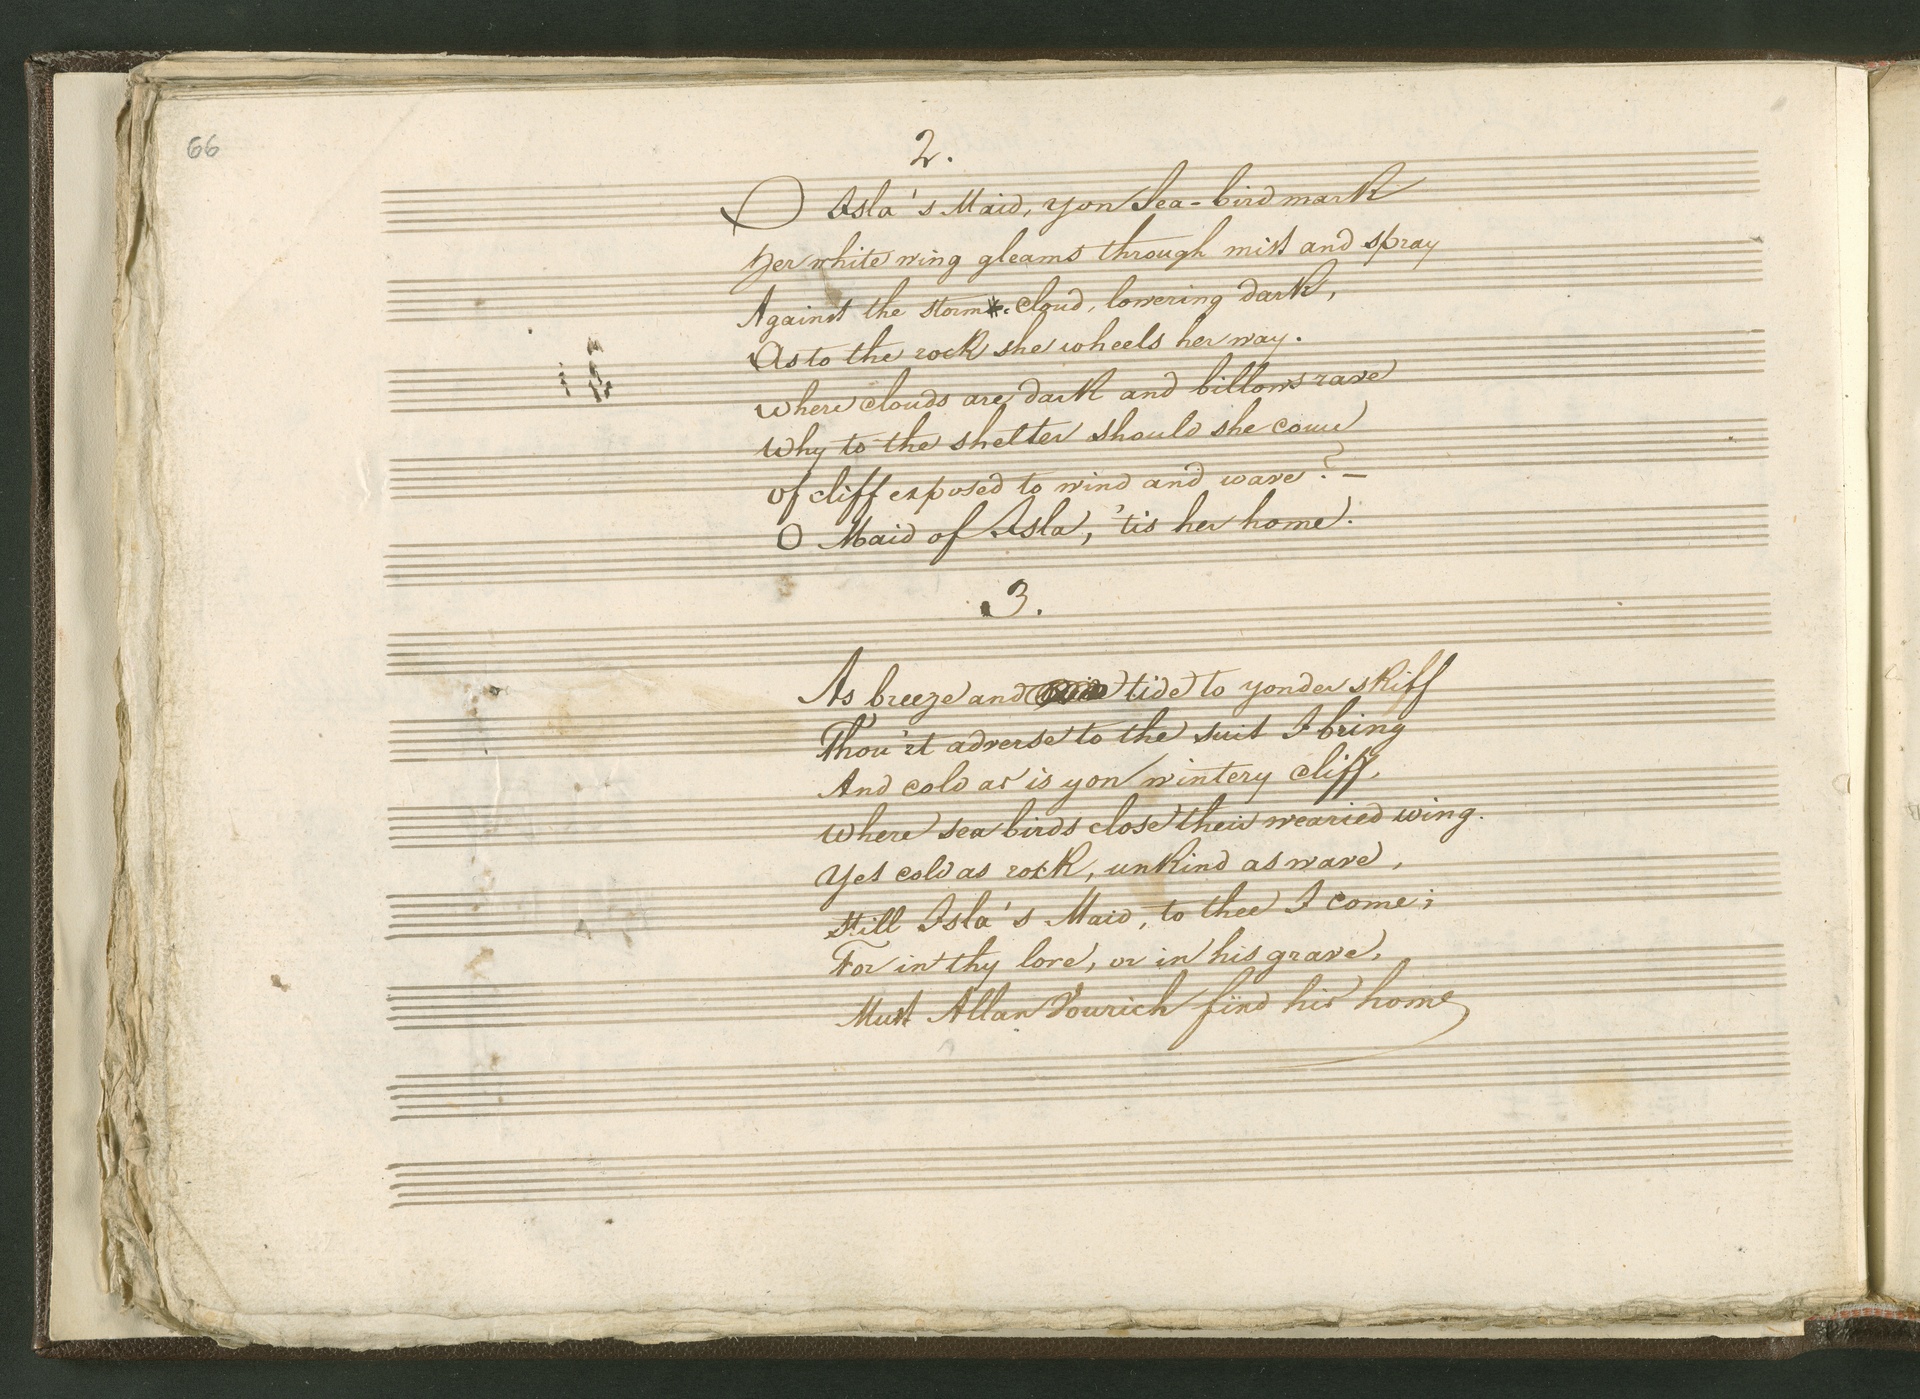 66
2.
O Isla's Maid, yon Sea-bird mark
Her white wing gleams through mist and spray
Against the storm-cloud, lowering dark,
As to the rock she wheels her way.
Where clouds are dark and billows rave
Why to the shelter should she come
Of cliff exposed to wind and wave? —
O Maid of Isla, 'tis her home.
3.
As breeze and tide to yonder skiff
Thou'rt adverse to the suit I bring
And cold as is yon wintery cliff,
Where sea birds close their wearied wing.
Yet cold as rock, unkind as wave,
Still Isla's Maid, to thee I come;
For in thy love, or in his grave,
Must Allan Vourich find his home